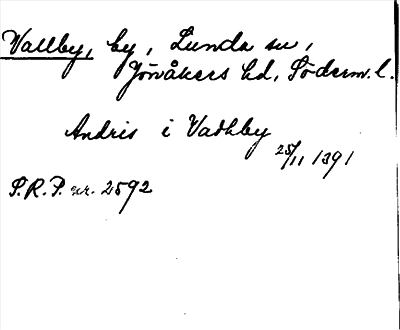 Vallby, by, Lunda sn,
Jönåkers hd, Söderm. l.
Andris i Vadhby
25/11 1391
S.R.P. nr. 2592